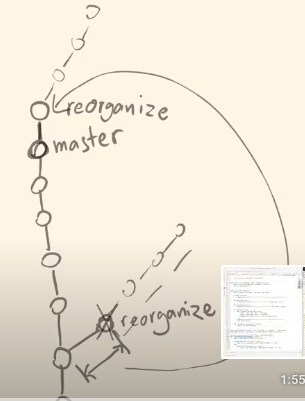 reorganize
master
reorganize
1:55